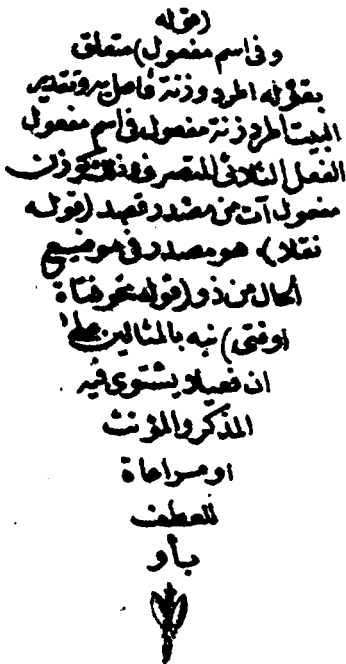 (قوله
وفي اسم مفعول) متعلق
بقوله اطرد وزنة فاصل به وتقدير
البيت اطرد زنة مفعول في اسم مفعول
الفعل الثلاثي المتصرف وذلك كوزن
مفعول آت من مصدر قصد (قوله
نقلا) هو مصدر في موضع
الحال من ذو (قوله نحو فتاة
او فتى) نبه بالمثالين على
ان فعيلا يستوى فيه
المذكر والمؤنث
او مراعاة
للعطف
بأو